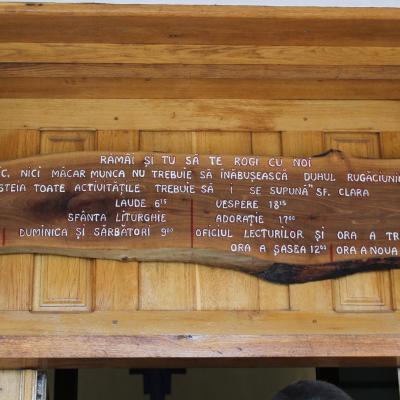 RĂMÂI ȘI TU SĂ TE ROGI CU NOI
NICI MĂCAR MUNCA NU TREBUIE SĂ ÎNĂBUȘEASCĂ DUHUL RUGĂCIUNII
TOATE ACTIVITĂȚILE TREBUIE SĂ I SE SUPUNĂ" SF. CLARA
LAUDE 6¹⁵ VESPERE 18¹⁵
SFÂNTA LITURGHIE ADORAȚIE 17⁰⁰
DUMINICA ȘI SĂRBĂTORI 9⁰⁰ OFICIUL LECTURILOR ȘI ORA A
ORA A ȘASEA 12⁰⁰ ORA A NOUA